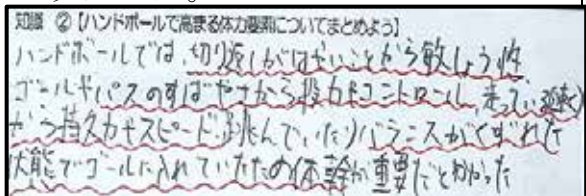 知識 ②【ハンドボールで高まる体力要素についてまとめよう】
ハンドボールでは、切り返しがはやいことから敏しょう性
ゴールやパスのすばやさから投力やコントロール、走っている
から持久力やスピード、跳んでいたりバランスがくずれた
状態でゴールに入れていたため体幹が重要だとわかった